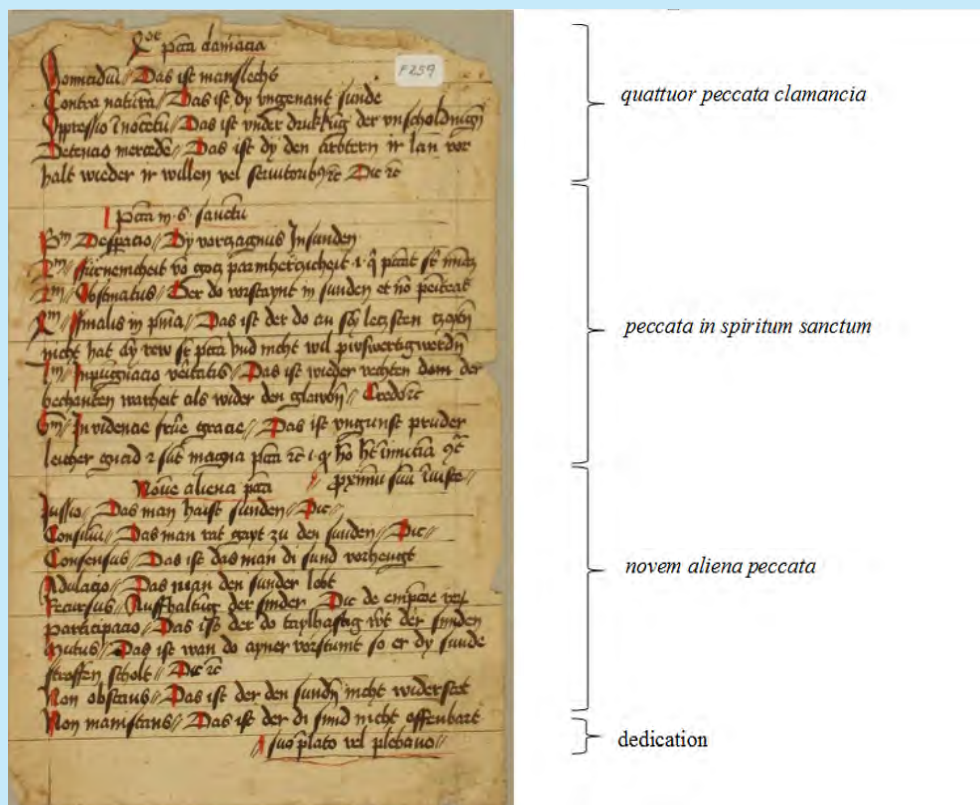 pctā clamācia
F259
Homicidiū // Das ist manslecht
Contra naturā // Das ist dy vngenant sunde
Oppressio īnocētū // Das ist vnder drukkūg der vnscholdīgn
Detencio mercedē // Das ist dy den arbtern ir lan vor
halt wieder ir willen vel seruitoribꝫ ꝛc Dic ꝛc
pctā in s sanctū
Pm Desperacio // Dy vorczagnus In sunden
Obstinatus // Der do vorstaynt in sunden et nō
finalis inpnīa // Das ist der do an sey letzsten
nicht hat dy rew vnd nicht wil
Inpugnacio vēitatis // Das ist wieder vechten dem der
bechanten warheit als wider den glawbn // Credo ꝛc
Invidencie frūe gracie // Das ist vngunst pruder
leicher gnad
Nouē aliena pctā
Jussio // Das man haist sunden // Dic //
Consiliū // Das man rat gayt zu den sunden // Dic //
Consensus // Das ist das man di sund vorhengt
Adulacio // Das man den sunder lobt
Recursus // Auffhaltūg der sinder Dic de
participacio // Das ist der do taylhaftig der sunden
Mutus // Das ist wan do ayner vorstumt so er dy sunde
stroffen scholt // Dic ꝛc
Non obstans // Das ist der den sundn nicht widerstet
Non manistans // Das ist der di sund nicht offenbart
suo plato vel plebano //
quattuor peccata clamancia
peccata in spiritum sanctum
novem aliena peccata
dedication